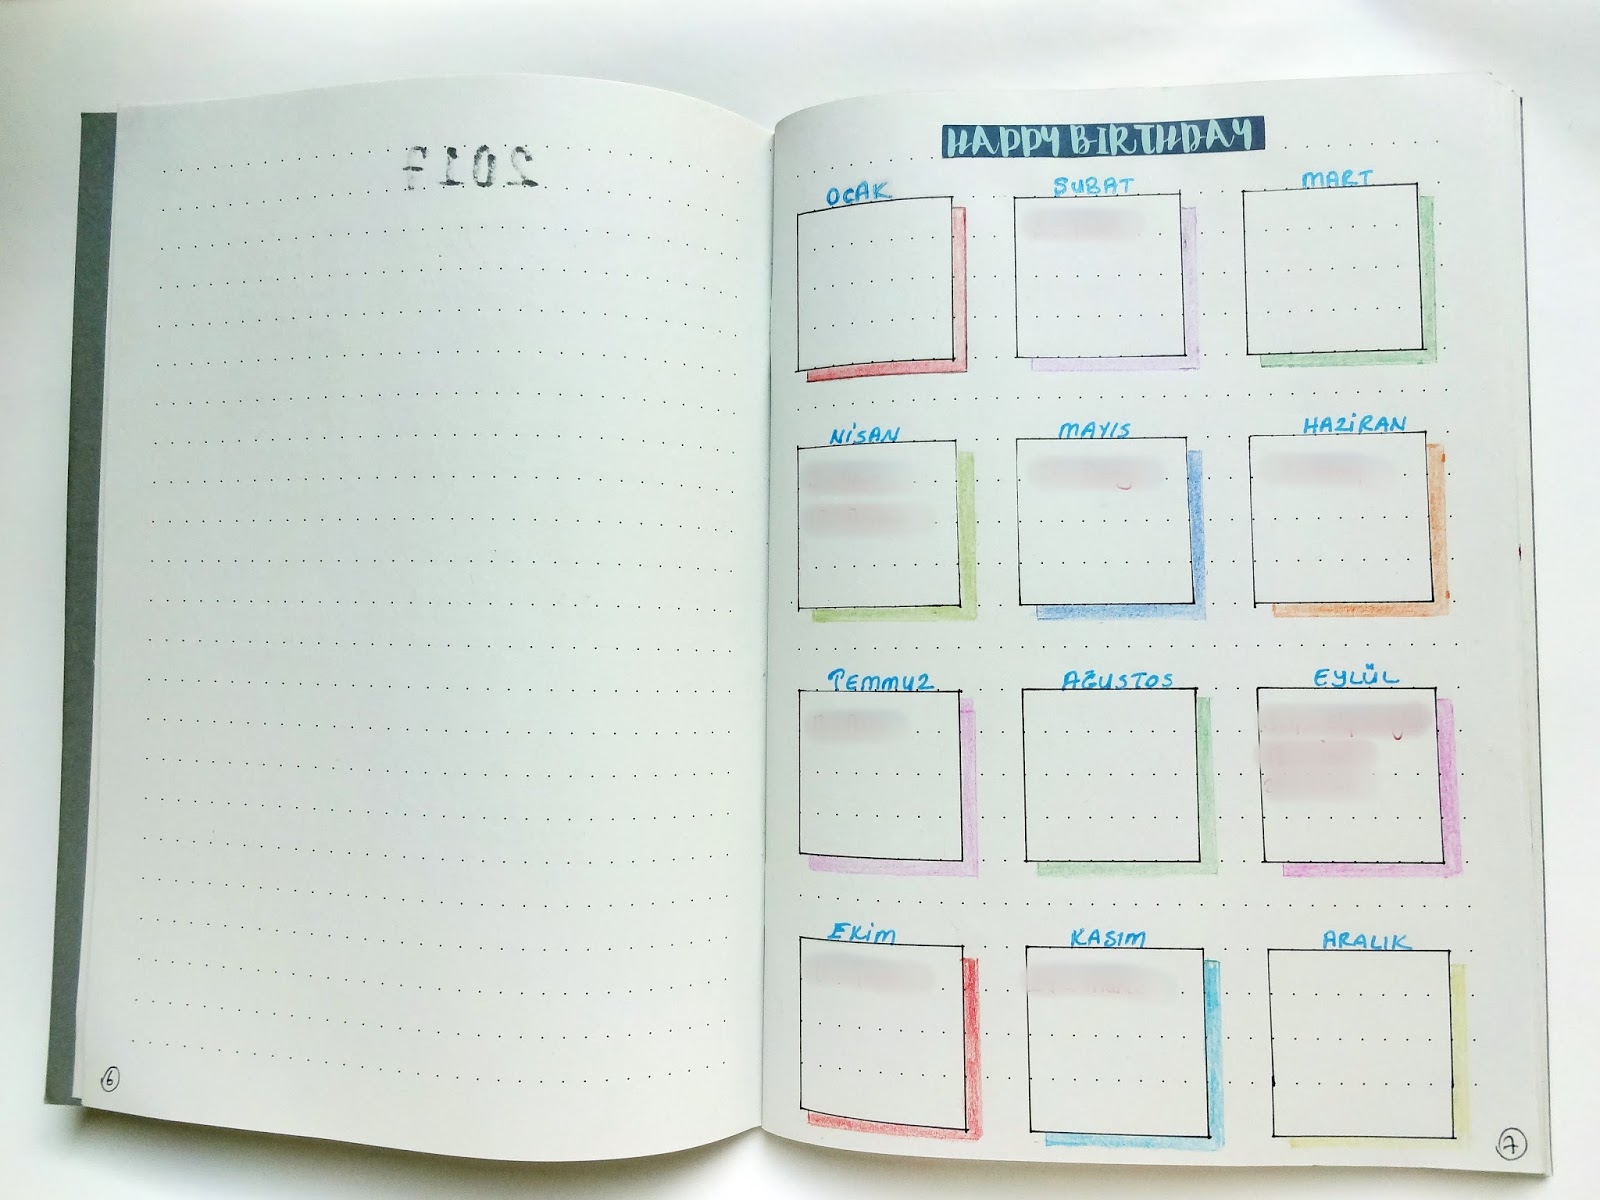 2017
HAPPY BIRTHDAY
OCAK
ŞUBAT
MART
NİSAN
MAYIS
HAZİRAN
TEMMUZ
AĞUSTOS
EYLÜL
EKİM
KASIM
ARALIK
6
7